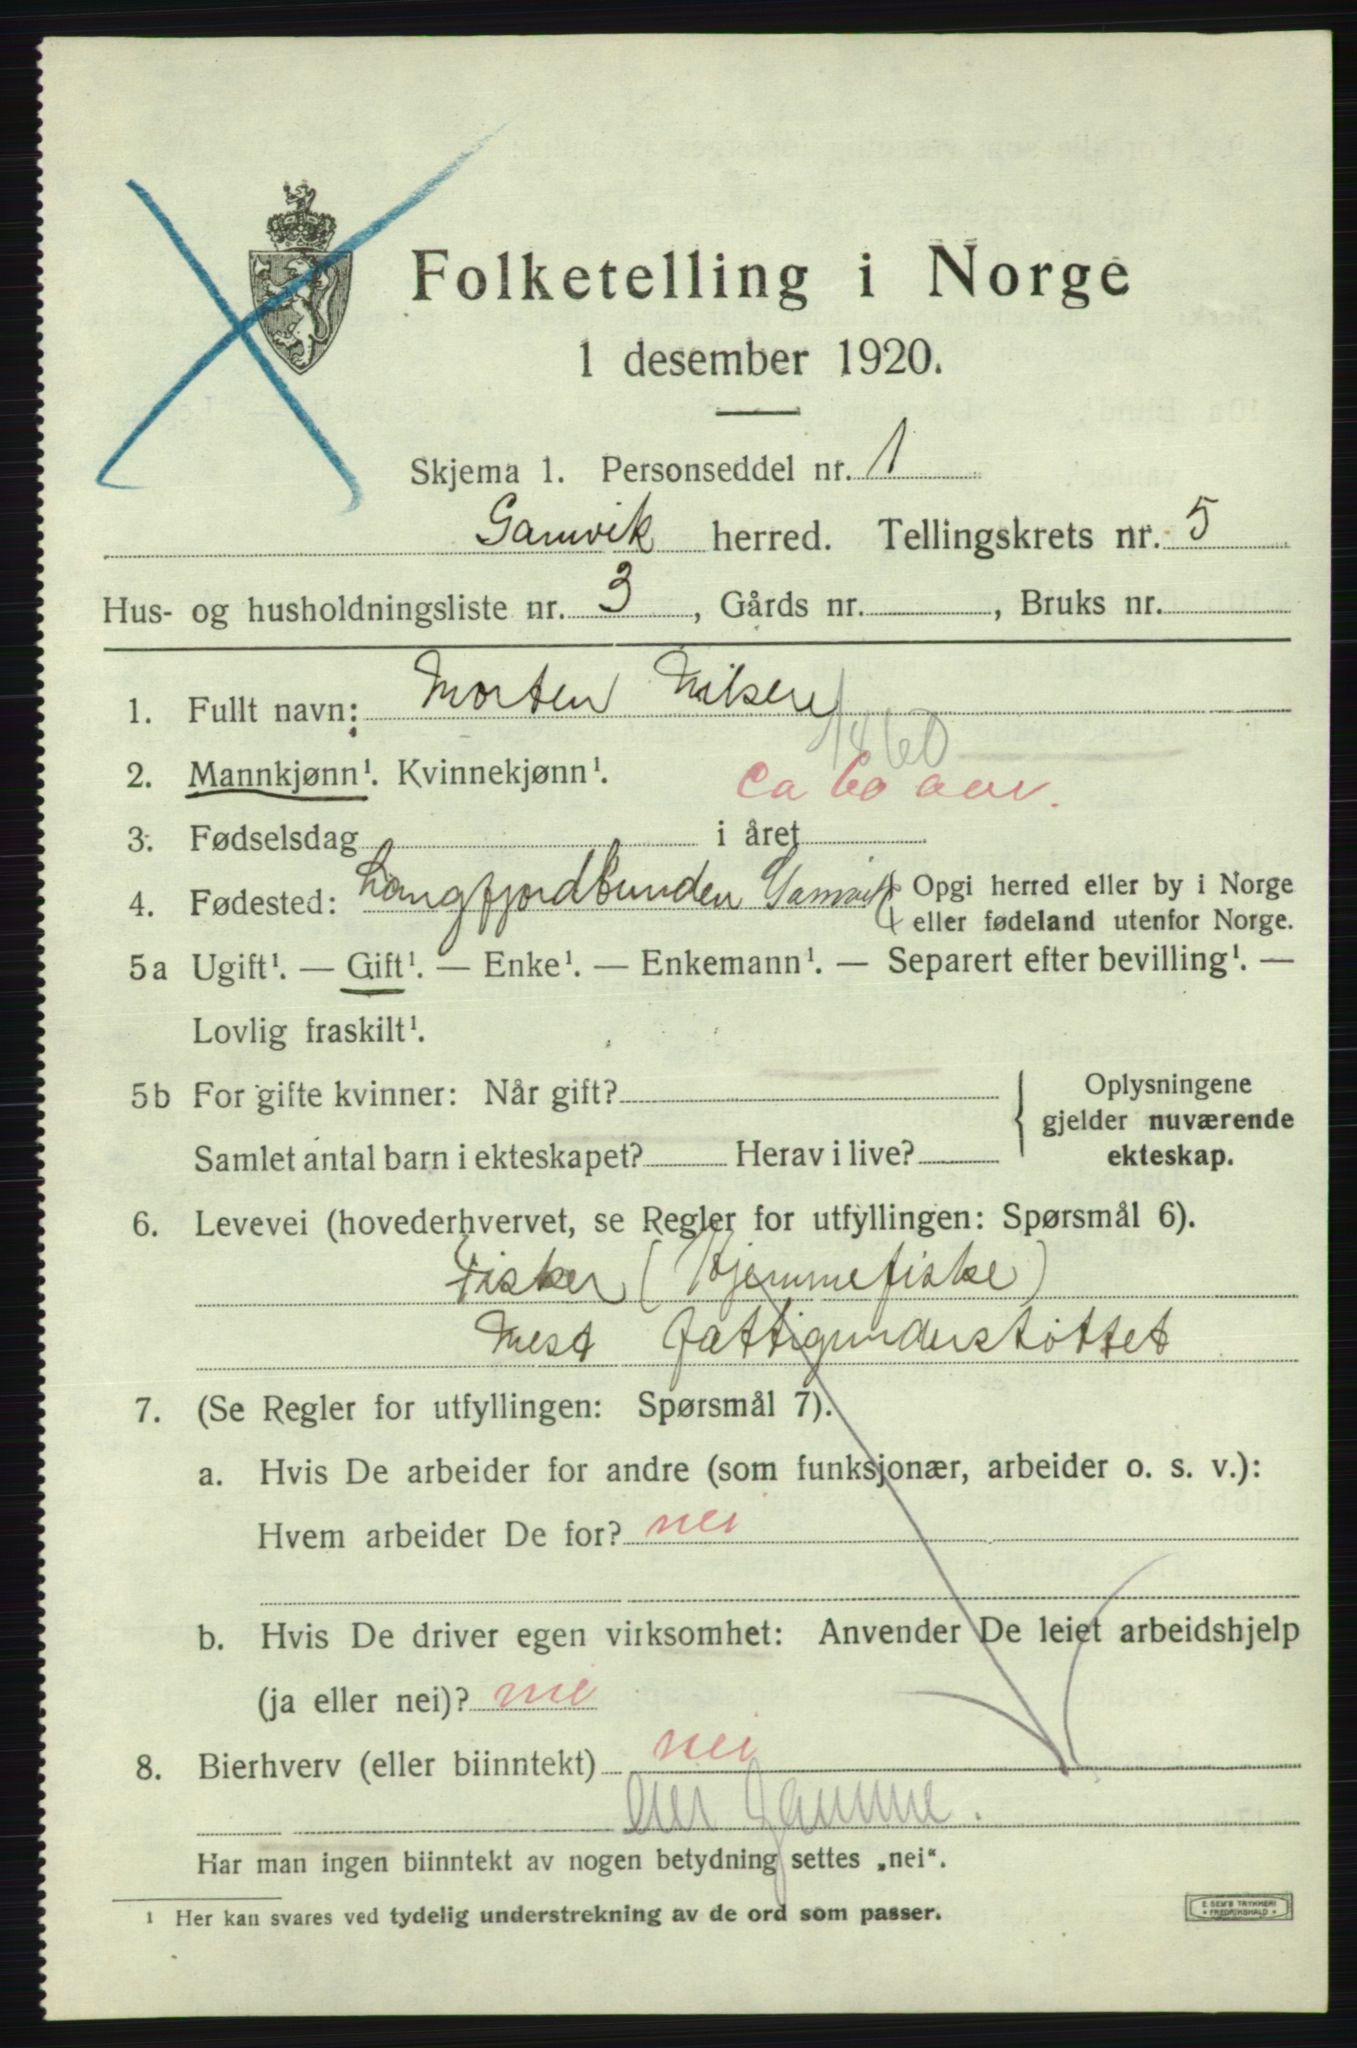 Folketelling i Norge
1 desember 1920.
Skjema 1. Personseddel nr. 1
Gamvik herred. Tellingskrets nr. 5
Hus- og husholdningsliste nr. 3, Gårds nr. , Bruks nr.
1. Fullt navn: Morten Nilsen
1860
2. Mannkjønn¹. Kvinnekjønn¹. Ca 60 aar.
3. Fødselsdag i året
4. Fødested: Langfjordbunden Gamvik { Opgi herred eller by i Norge
eller fødeland utenfor Norge.
5a Ugift¹. — Gift¹. — Enke¹. — Enkemann¹. — Separert efter bevilling¹. —
Lovlig fraskilt¹.
5b For gifte kvinner: Når gift? { Oplysningene
gjelder nuværende
Samlet antal barn i ekteskapet? Herav i live? ekteskap.
6. Levevei (hovederhvervet, se Regler for utfyllingen: Spørsmål 6).
Fisker (Hjemmefiske)
Mest fattigunderstøttet
7. (Se Regler for utfyllingen: Spørsmål 7).
a. Hvis De arbeider for andre (som funksjonær, arbeider o. s. v.):
Hvem arbeider De for? nei
b. Hvis De driver egen virksomhet: Anvender De leiet arbeidshjelp
(ja eller nei)? nei
8. Bierhverv (eller biinntekt) nei
eier Gamme.
Har man ingen biinntekt av nogen betydning settes „nei“.
¹ Her kan svares ved tydelig understrekning av de ord som passer.
E SEM'S TRYKKERI
FREDRIKSHALD